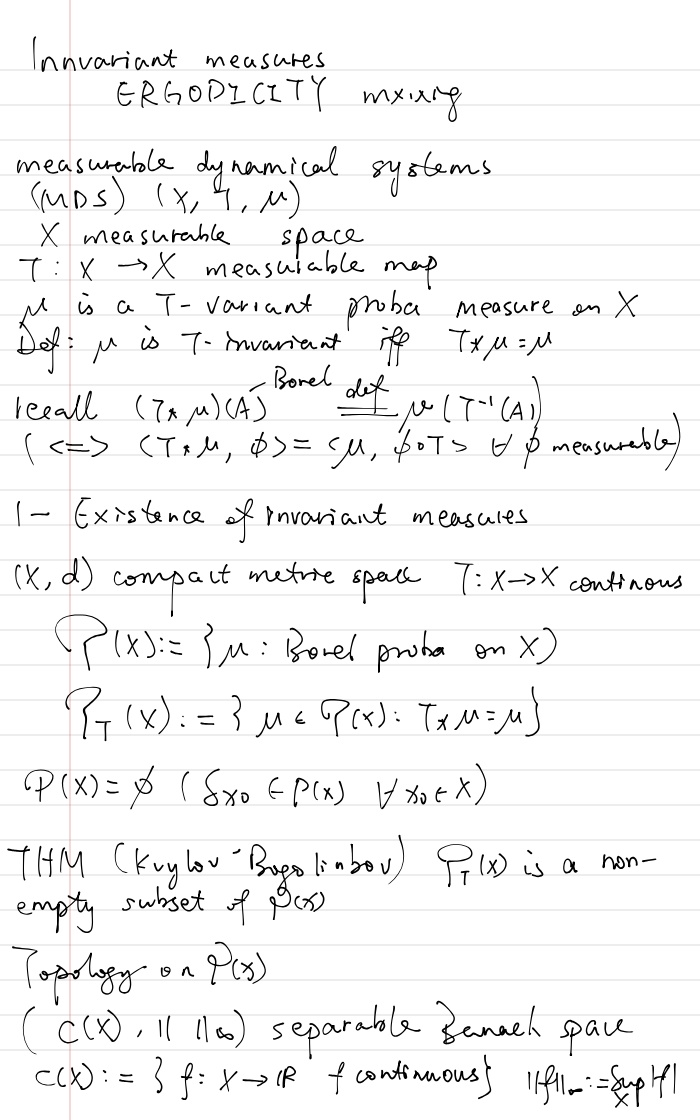 Innvariant measures
ERGODICITY mxixg
measurable dynamical systems
(MDS) (X, T, μ)
X measurable space
T : X → X measurable map
μ is a T-variant proba measure on X
Def: μ is T-invariant iff T*μ = μ
recall (T*μ)(A) - Borel def = μ(T⁻¹(A))
( <=> <T*μ, ϕ> = <μ, ϕ∘T> ∀ ϕ measurable)
1- Existence of invariant measures
(X, d) compact metric space T: X→X continous
P(X) := { μ : Borel proba on X)
P_T(X) := { μ ∈ P(X) : T*μ = μ}
P(X) = ∅ ( δx₀ ∈ P(X) ∀ x₀ ∈ X)
THM (Krylov-Bogolinbov) P_T(X) is a non-
empty subset of P(X)
Topology on P(X)
( C(X), || ||∞) separable Banach space
C(X) := { f : X → IR f continuous} ||f||∞ := sup |f|
X